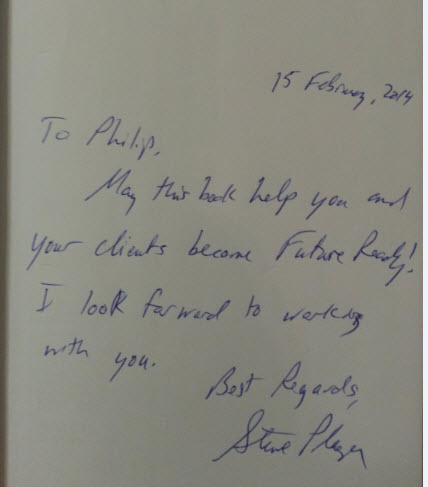 15 February, 2014
To Philip,
May this book help you and
your clients become Future Ready!
I look forward to working
with you.
Best Regards,
Steve Player